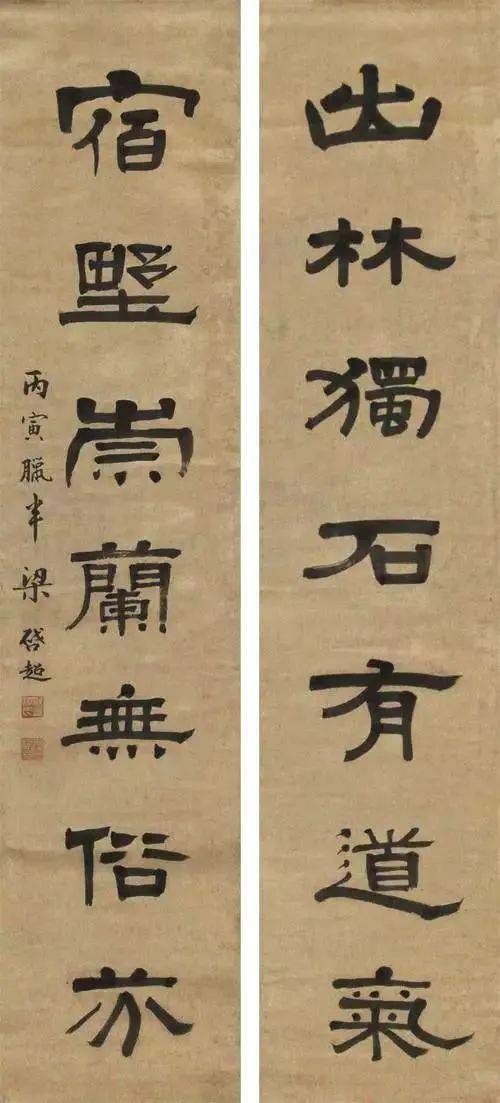 出林獨石有道氣
宿野崇蘭無俗
丙寅臘半梁啓超